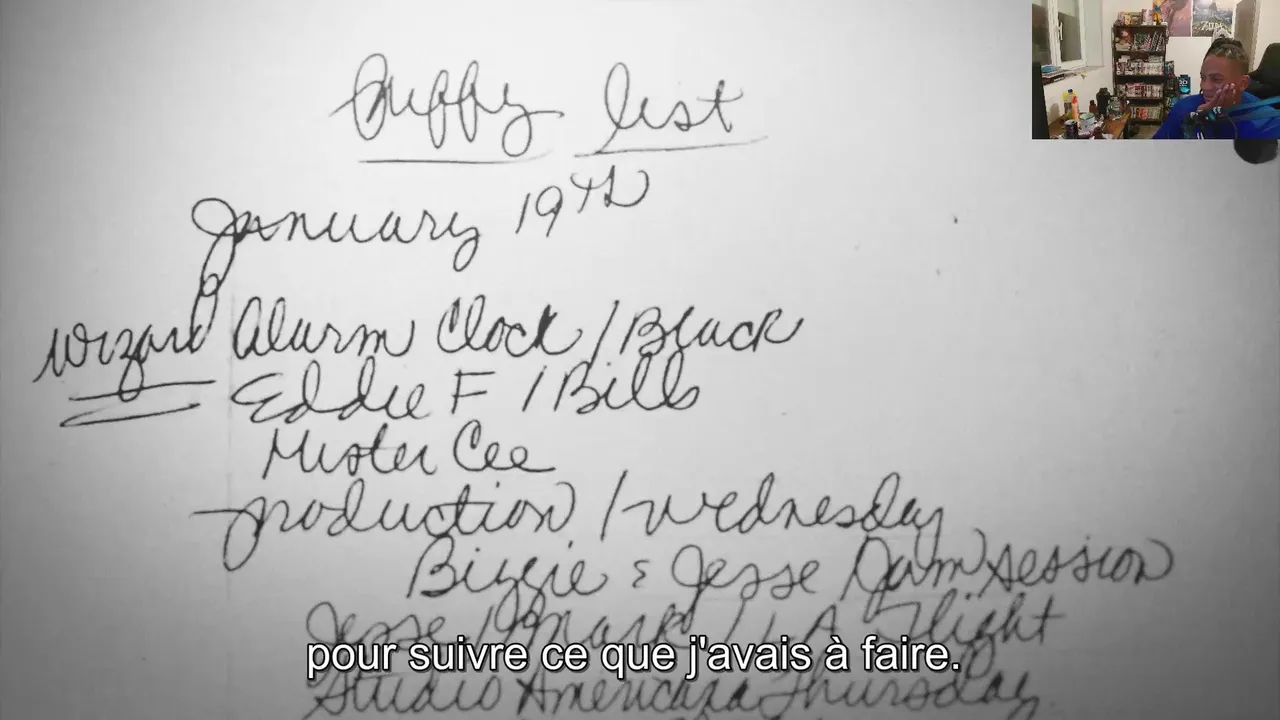 Puffy list
January 19TH
Wizard Alarm Clock / Black
Eddie F / Bills
Mister Cee
production / wednesday
Biggie & Jesse Jam session
Jesse / Mark / LA Flight
pour suivre ce que j'avais à faire.
Studio Americana Thursday